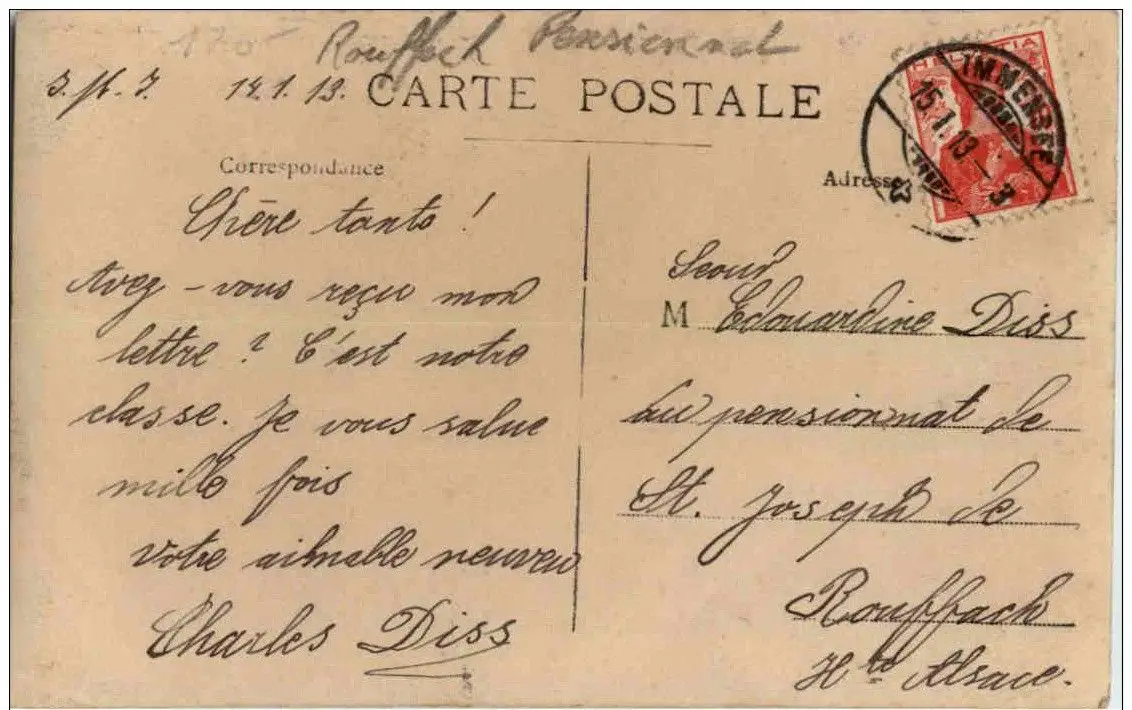 170
Rouffach Pensionnat
14.1.13.
CARTE POSTALE
HELVETIA
IMMENSEE
15.1.13.–3
Correspondance
Adresse
Chère tante !
Avez-vous reçu mon
lettre ? C'est notre
classe. Je vous salue
mille fois
Votre aimable neuveu
Charles Diss
Seour
M Edouardine Diss
au pensionnat de
St. Joseph de
Rouffach
Hte Alsace.